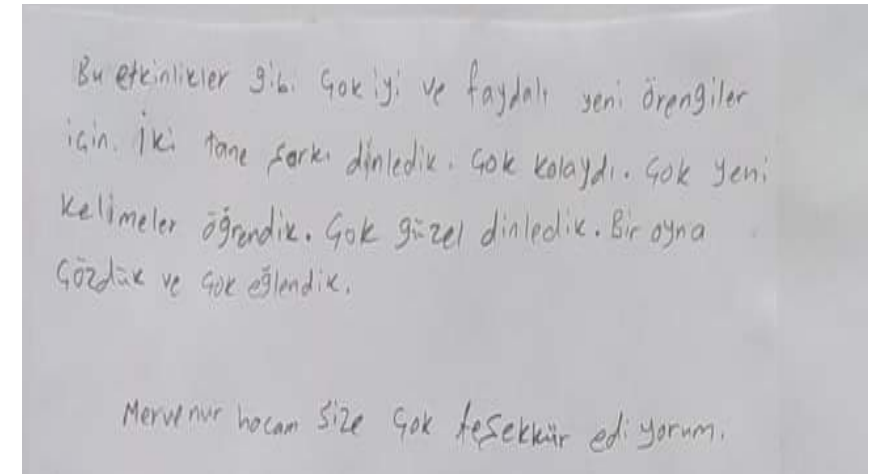 Bu etkinlikler gibi çok iyi ve faydalı yeni örengiler
için. İki tane şarkı dinledik. Çok kolaydı. Çok yeni
kelimeler öğrendik. Çok güzel dinledik. Bir oyna
Çözdük ve çok eğlendik.
Mervenur hocam size çok teşekkür ediyorum.